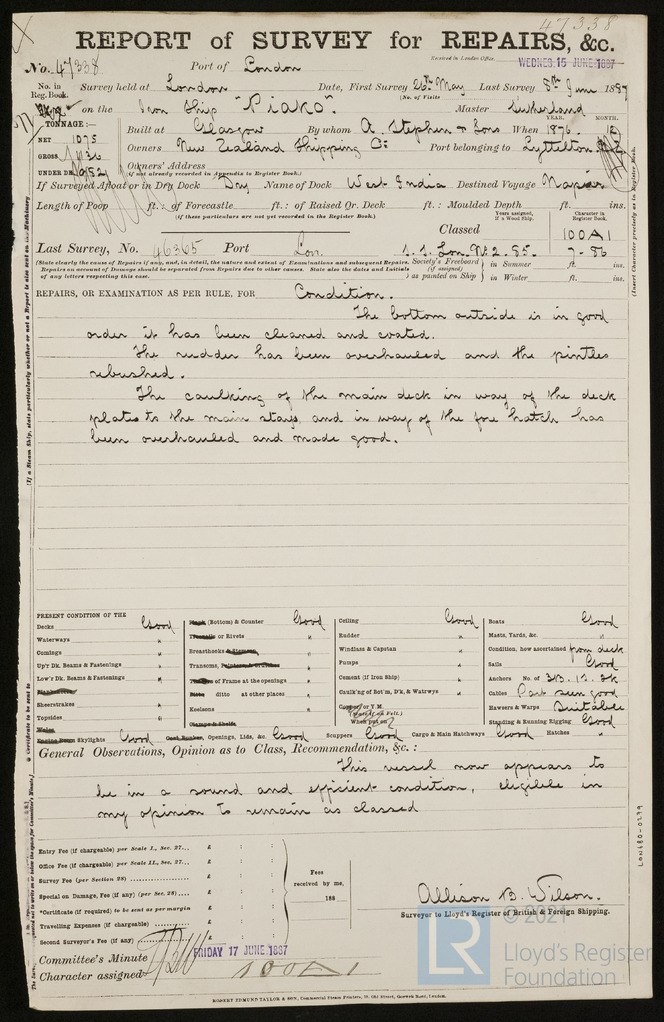 47338
REPORT of SURVEY for REPAIRS, &c.
No. 47338 Port of London Received in London Office. WEDNES. 15 JUNE 1887
No. in Reg. Book. Survey held at London Date, First Survey 26th May Last Survey 8th June 1887
(No. of Visits
on the Iron Ship "Piako" Master Sutherland
TONNAGE:— YEAR. MONTH.
Built at Glasgow By whom A. Stephen & Sons When 1876. 12
NET 1075
Owners New Zealand Shipping Co Port belonging to Lyttelton N.Z.
GROSS 1136
Owners' Address
UNDER DK. 1052 (if not already recorded in Appendix to Register Book.)
If Surveyed Afloat or in Dry Dock Dry Name of Dock West India Destined Voyage Napier
Length of Poop ft.: of Forecastle ft.: of Raised Qr. Deck ft.: Moulded Depth ft. ins.
(if these particulars are not yet recorded in the Register Book.)
Years assigned, if a Wood Ship. Character in Register Book.
Classed 100A1
Last Survey, No. 46365 Port Lon. S.S. Lon. No 2. 85. 7-86
(State clearly the cause of Repairs if any, and, in detail, the nature and extent of Examinations and subsequent Repairs. Society's Freeboard in Summer ft. ins.
Repairs on account of Damage should be separated from Repairs due to other causes. State also the dates and Initials (if assigned)
of any letters respecting this case. ) as painted on Ship in Winter ft. ins.
REPAIRS, OR EXAMINATION AS PER RULE, FOR Condition.
The bottom outside is in good
order it has been cleaned and coated.
The rudder has been overhauled and the pintles
rebushed.
The caulking of the main deck in way of the deck
plates to the main stays and in way of the fore hatch has
been overhauled and made good.
PRESENT CONDITION OF THE
Decks Good
Waterways "
Comings "
Up'r Dk. Beams & Fastenings "
Low'r Dk. Beams & Fastenings "
Sheerstrakes "
Topsides "
Skylights Good
Plank (Bottom) & Counter Good
Treenails or Rivets "
Breasthooks & Stemson "
Transoms, Pointers & Crutches "
Timbers of Frame at the openings "
Ditto ditto at other places "
Keelsons "
Clamps & Shelfs
Coal Bunker, Openings, Lids, &c. Good
Ceiling Good
Rudder "
Windlass & Capstan "
Pumps "
Cement (if Iron Ship) "
Caulk'ng of Bot'm, D'k, & Waterwys "
Copper or Y.M.
(State if on Felt.)
When put on
Scuppers Good Cargo & Main Hatchways Good Hatches "
Boats Good
Masts, Yards, &c. "
Condition, how ascertained from deck
Sails Good
Anchors No. of 3B. 1S. 2K
Cables Part seen good
Hawsers & Warps Suitable
Standing & Running Rigging Good
General Observations, Opinion as to Class, Recommendation, &c. :
This vessel now appears to
be in a sound and efficient condition, eligible in
my opinion to remain as classed
Entry Fee (if chargeable) per Scale I., Sec. 27... £ : :
Office Fee (if chargeable) per Scale II., Sec. 27... £ : :
Survey Fee (per Section 28) £ : :
Special on Damage, Fee (if any) (per Sec. 28) £ : :
*Certificate (if required) to be sent as per margin £ : :
Travelling Expenses (if chargeable) £ : :
Second Surveyor's Fee (if any) £ : :
Fees received by me, 188
Allison B. Wilson.
Surveyor to Lloyd's Register of British & Foreign Shipping.
Committee's Minute FRIDAY 17 JUNE 1887
Character assigned 100A1
ROBERT EDMUND TAYLOR & SON, Commercial Steam Printers, 19, Old Street, Goswell Road, London.
(Insert Character precisely as in Register Book.)
LON680-0299
© 2021
LR
Lloyd's Register
Foundation